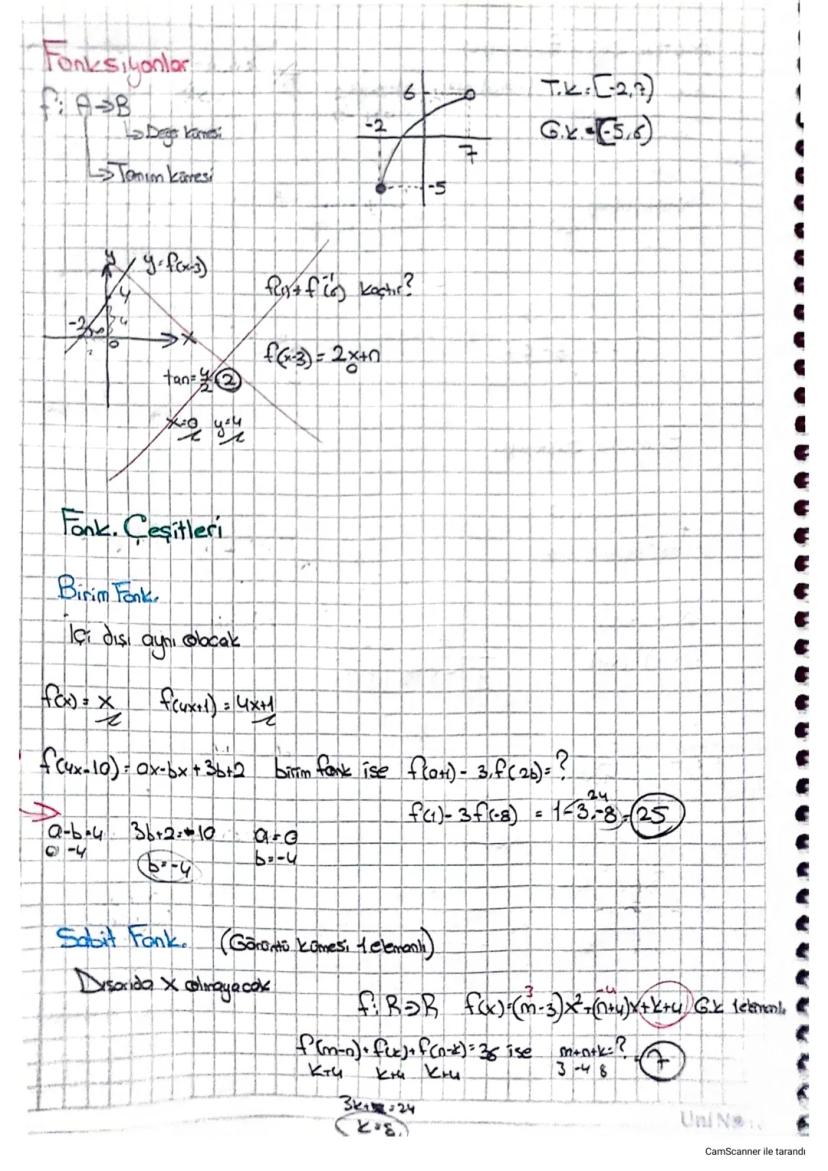 Fonksiyonlar
f: A→B
↳Değer kümesi
↳Tanım kümesi
6
-2
7
-5
T.k=[-2,7)
G.k=[-5,6)
y
y=f(x-3)
4
-2
4
0
x
tan=4/2=2
x=0 y=4
f(x-3)=2x+n
Fonk. Çeşitleri
Birim Fonk.
İçi dışı aynı olacak
f(x)=x f(4x+1)=4x+1
f(4x-10)=ax-bx+3b+2 birim fonk ise f(a+1)-3.f(2b)=?
f(1)-3f(-8) = 1-3.-8=25
24
a-b=4 3b+2=-10 a=0
0 -4 b=-4 b=-4
Sabit Fonk. (Görüntü kümesi 1 elemanlı)
Dışarıda x olmayacak
3 -4
f: R→R f(x)=(m-3)x²+(n+4)x+k+4 G.k 1 elemanlı
f(m-n)+f(k)+f(n-k)=36 ise m+n+k=? 7
k+4 k+4 k+4 3 -4 8
=24
k=8
CamScanner ile tarandı